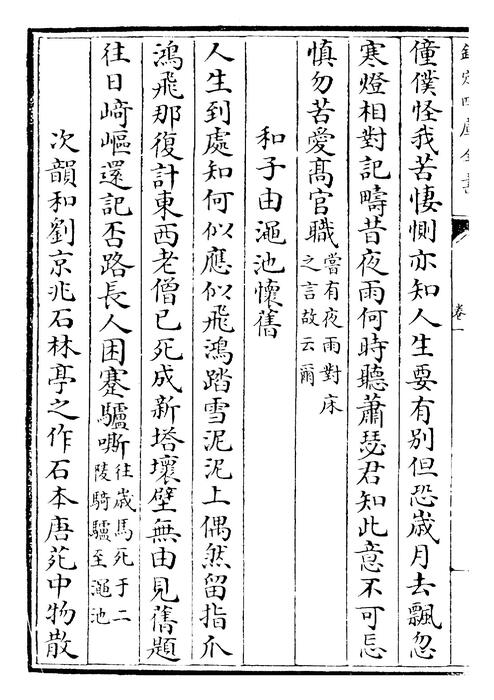 欽定四庫全書
卷一
僮僕怪我苦悽惻亦知人生要有別但恐歲月去飄忽
寒燈相對記疇昔夜雨何時聽蕭瑟君知此意不可忘
慎勿苦愛髙官職嘗有夜雨對床之言故云爾
和子由澠池懷舊
人生到處知何似應似飛鴻踏雪泥泥上偶然留指爪
鴻飛那復計東西老僧已死成新塔壞壁無由見舊題
往日崎嶇還記否路長人困蹇驢嘶往歲馬死于二陵騎驢至澠池
次韻和劉京兆石林亭之作石本唐苑中物散